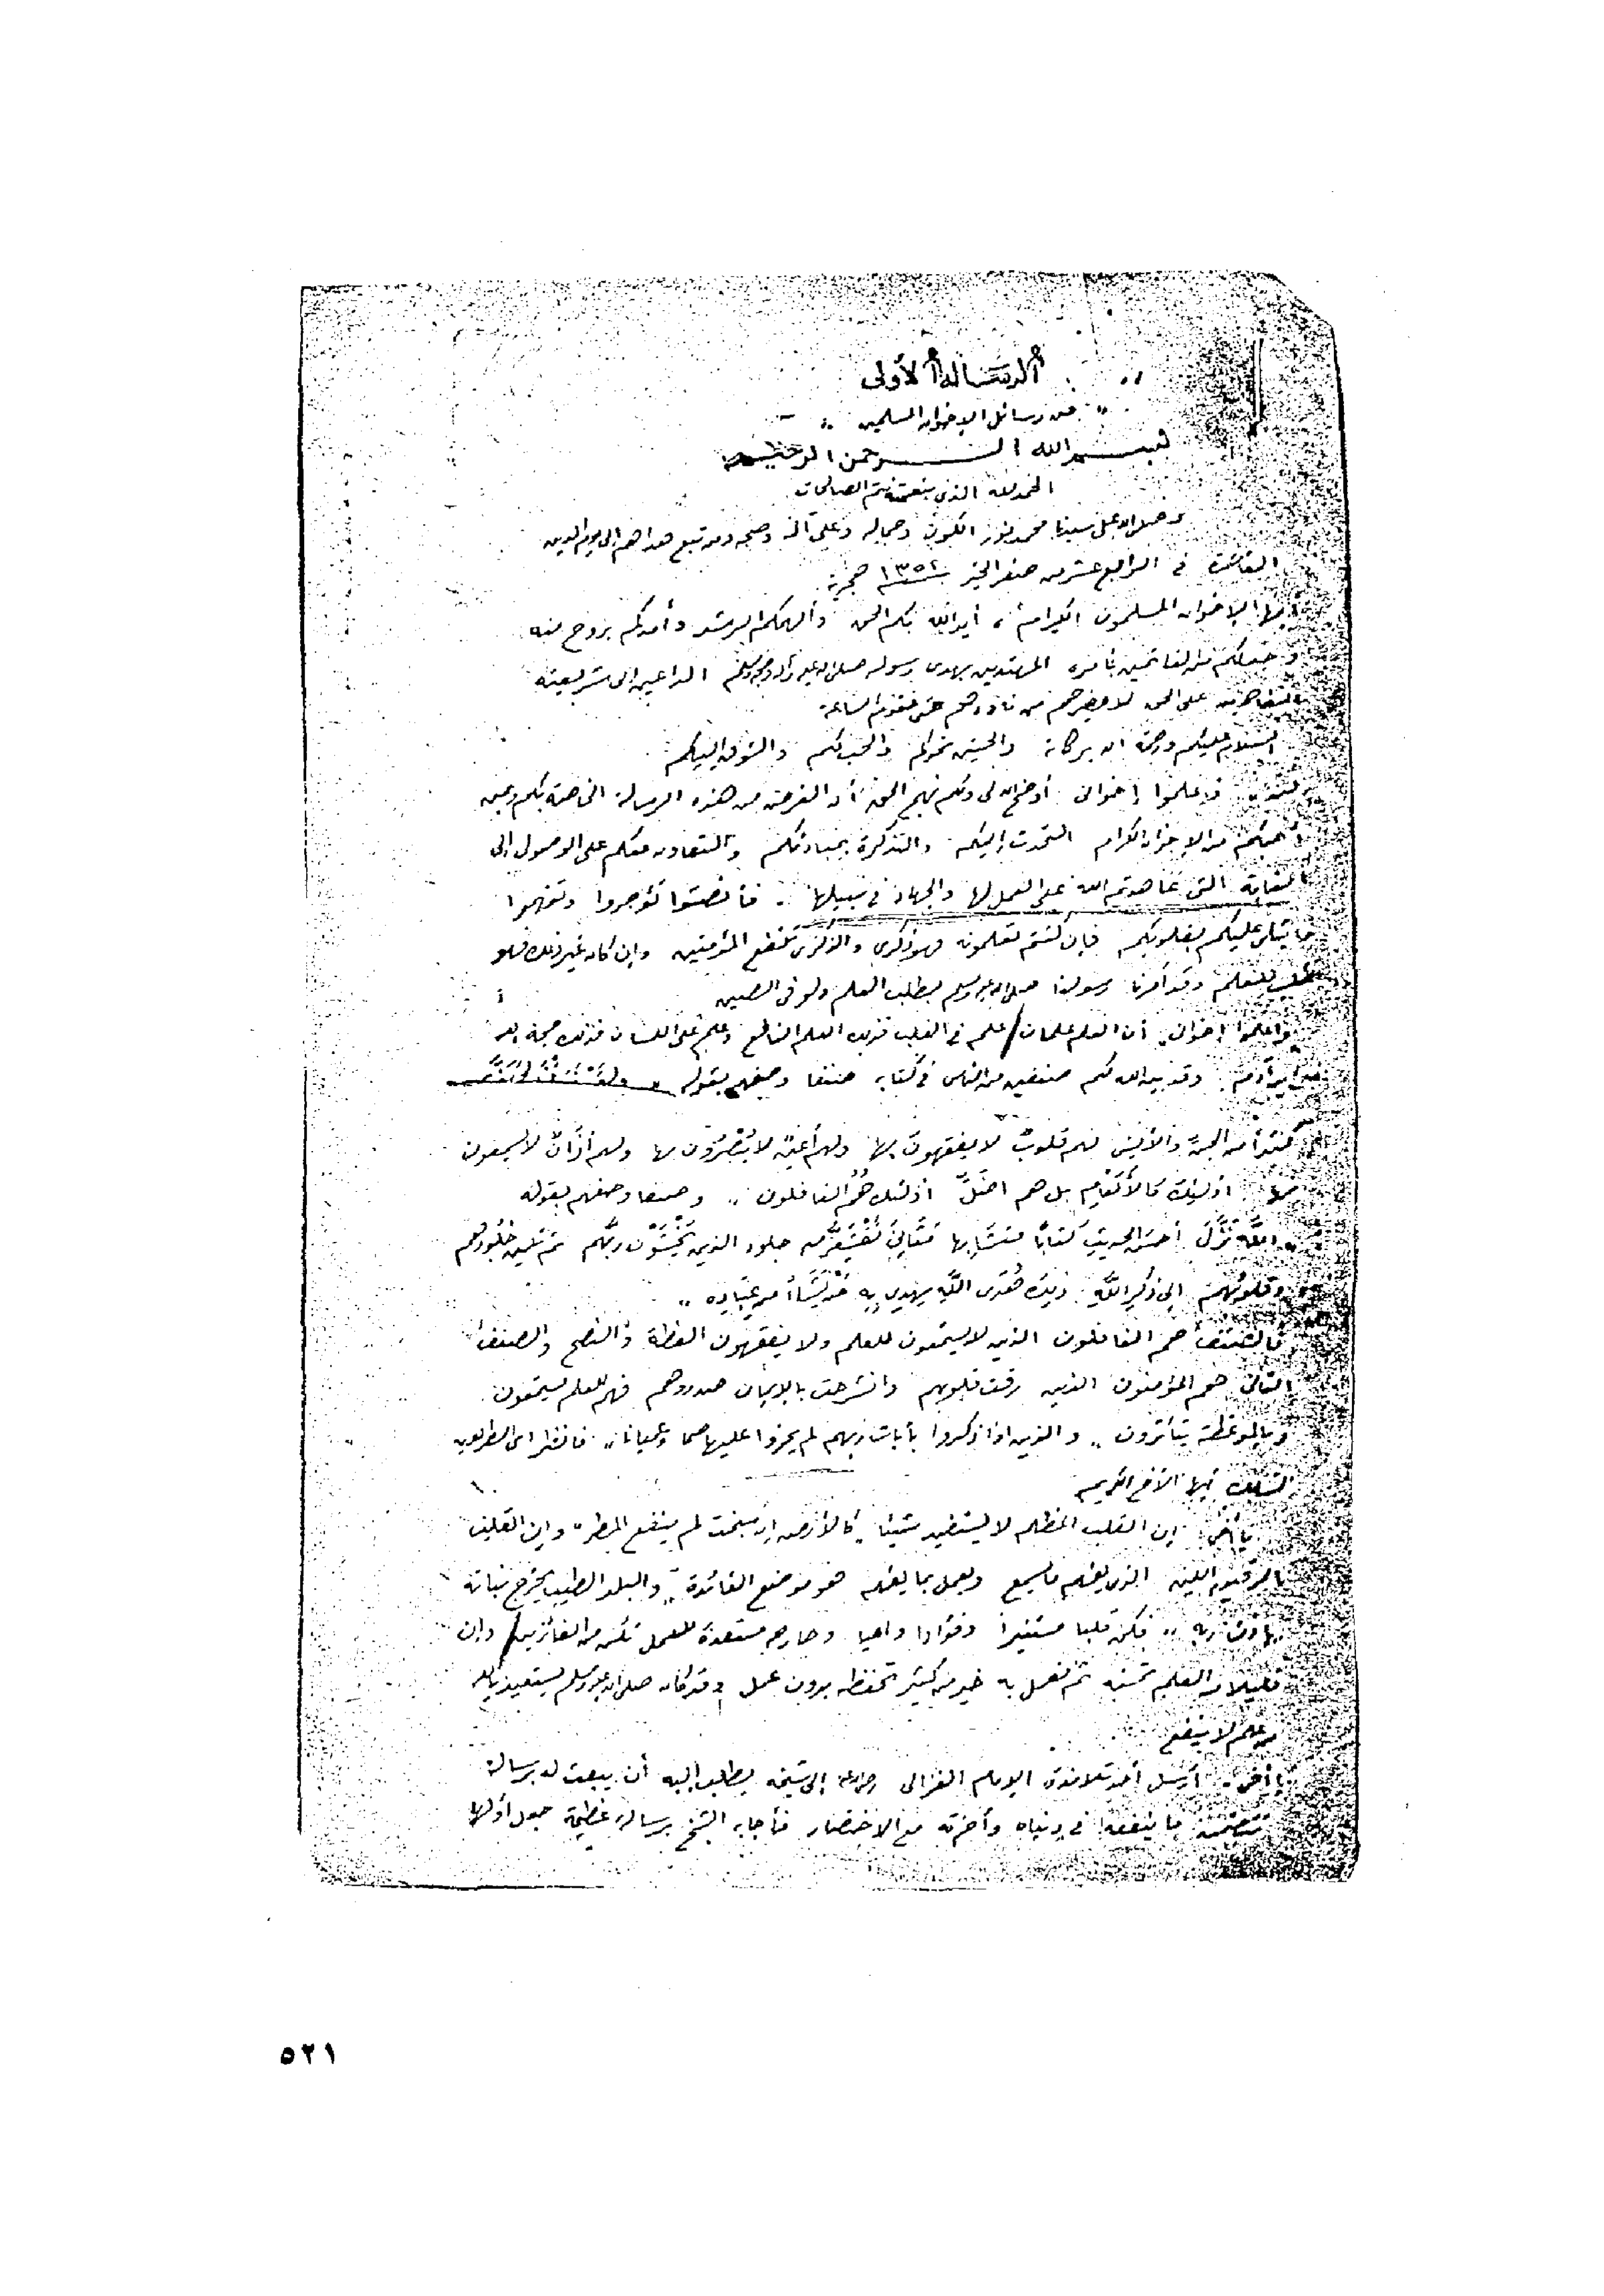 الرسالة الأولى
" من رسائل الإخوان المسلمين "
بسم الله الرحمن الرحيم
الحمد لله الذي بنعمته تتم الصالحات
وصلى الله على سيدنا محمد نور الكون وجماله وعلى آله وصحبه ومن تبع هداهم إلى يوم الدين
القاهرة في الرابع عشر من صفر الخير سنة ١٣٥٢ هجرية
أيها الإخوان المسلمون الكرام ، أيد الله بكم الحق وألهمكم الرشد وأمدكم بروح منه
وجعلكم من القائمين بأمره المهتدين بهدى رسوله صلى الله عليه وآله وصحبه وسلم الداعين إلى شريعته
الظاهرين على الحق لا يضرهم من ناوأهم حتى تقوم الساعة
السلام عليكم ورحمة الله وبركاته والحنين نحوكم والحب لكم والشوق إليكم
وبعد .. فاعلموا إخواني أوضح الله لي ولكم نهج الحق أن الغرض من هذه الرسالة الخاصة بكم وبمن
أحبكم من الإخوان الكرام التحدث إليكم والتذكرة بمبادئكم والتعاون معكم على الوصول إلى
الغاية التي عاهدتم الله على العمل لها والجهاد في سبيلها .. فأنصتوا تؤجروا وتفهموا
ما يتلى عليكم بقلوبكم فإن كنتم تعلمونه فهو ذكرى والذكرى تنفع المؤمنين وإن كان غير ذلك فهو
للتعلم وقد أمرنا رسولنا صلى الله عليه وسلم بطلب العلم ولو في الصين
واعلموا إخواني أن العلم علمان / علم في القلب فذلك العلم النافع وعلم على اللسان فذلك حجة الله
على ابن آدم . وقد بين الله لكم صنفين من الناس في كتابه صنفا وصفهم بقوله " ولقد ذرأنا لجهنم
كثيرا من الجن والأنس لهم قلوب لا يفقهون بها ولهم أعين لا يبصرون بها ولهم آذان لا يسمعون
بها أولئك كالأنعام بل هم اضل أولئك هم الغافلون " وصنفا وصفهم بقوله
" الله نزل أحسن الحديث كتابا متشابها مثاني تقشعر منه جلود الذين يخشون ربهم ثم تلين جلودهم
وقلوبهم إلى ذكر الله ذلك هدى الله يهدي به من يشاء من عباده "
فالصنف هم الغافلون الذين لا يستمعون للعلم ولا يفقهون العظة والنصح والصنف
الثاني هم المؤمنون الذين رقت قلوبهم وانشرحت بالإيمان صدورهم فهم للعلم يستمعون
وبالموعظة يتأثرون " والذين اذا ذكروا بآيات ربهم لم يخروا عليها صما وعميانا " فانظر اى الطريقين
تسلك أيها الأخ الكريم
يا أخى إن القلب المظلم لا يستفيد شيئا كالأرض إن سبخت لم ينفع المطر وإن القلب
الرقيق اللين الذي يفهم ما يسمع ويعمل بما يفهم هو موضع الفائدة " والبلد الطيب يخرج نباته
بإذن ربه " فلكن قلبا مستنيرا وفؤادا واعيا وجارحة مستعدة للعمل تكن من الفائزين / وإن
قليلا من العلم ثم تعمل به خير من كثير تحفظه بدون عمل وقد كان صلى الله عليه وسلم يستعيذ بالله
من علم لا ينفع
يا أخى أرسل أحد تلامذة الإمام الغزالى رحمه الله إلى شيخه يطلب إليه أن يبعث له برسالة
تتضمن ما ينفعه في دنياه وأخرته مع الاختصار فأجابه الشيخ برسالة عظيمة جعل أولها
٥٢١